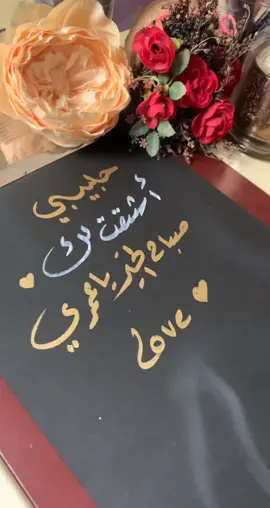 حبيبي
أشتقت لك
صباح الخير يا عمري
love